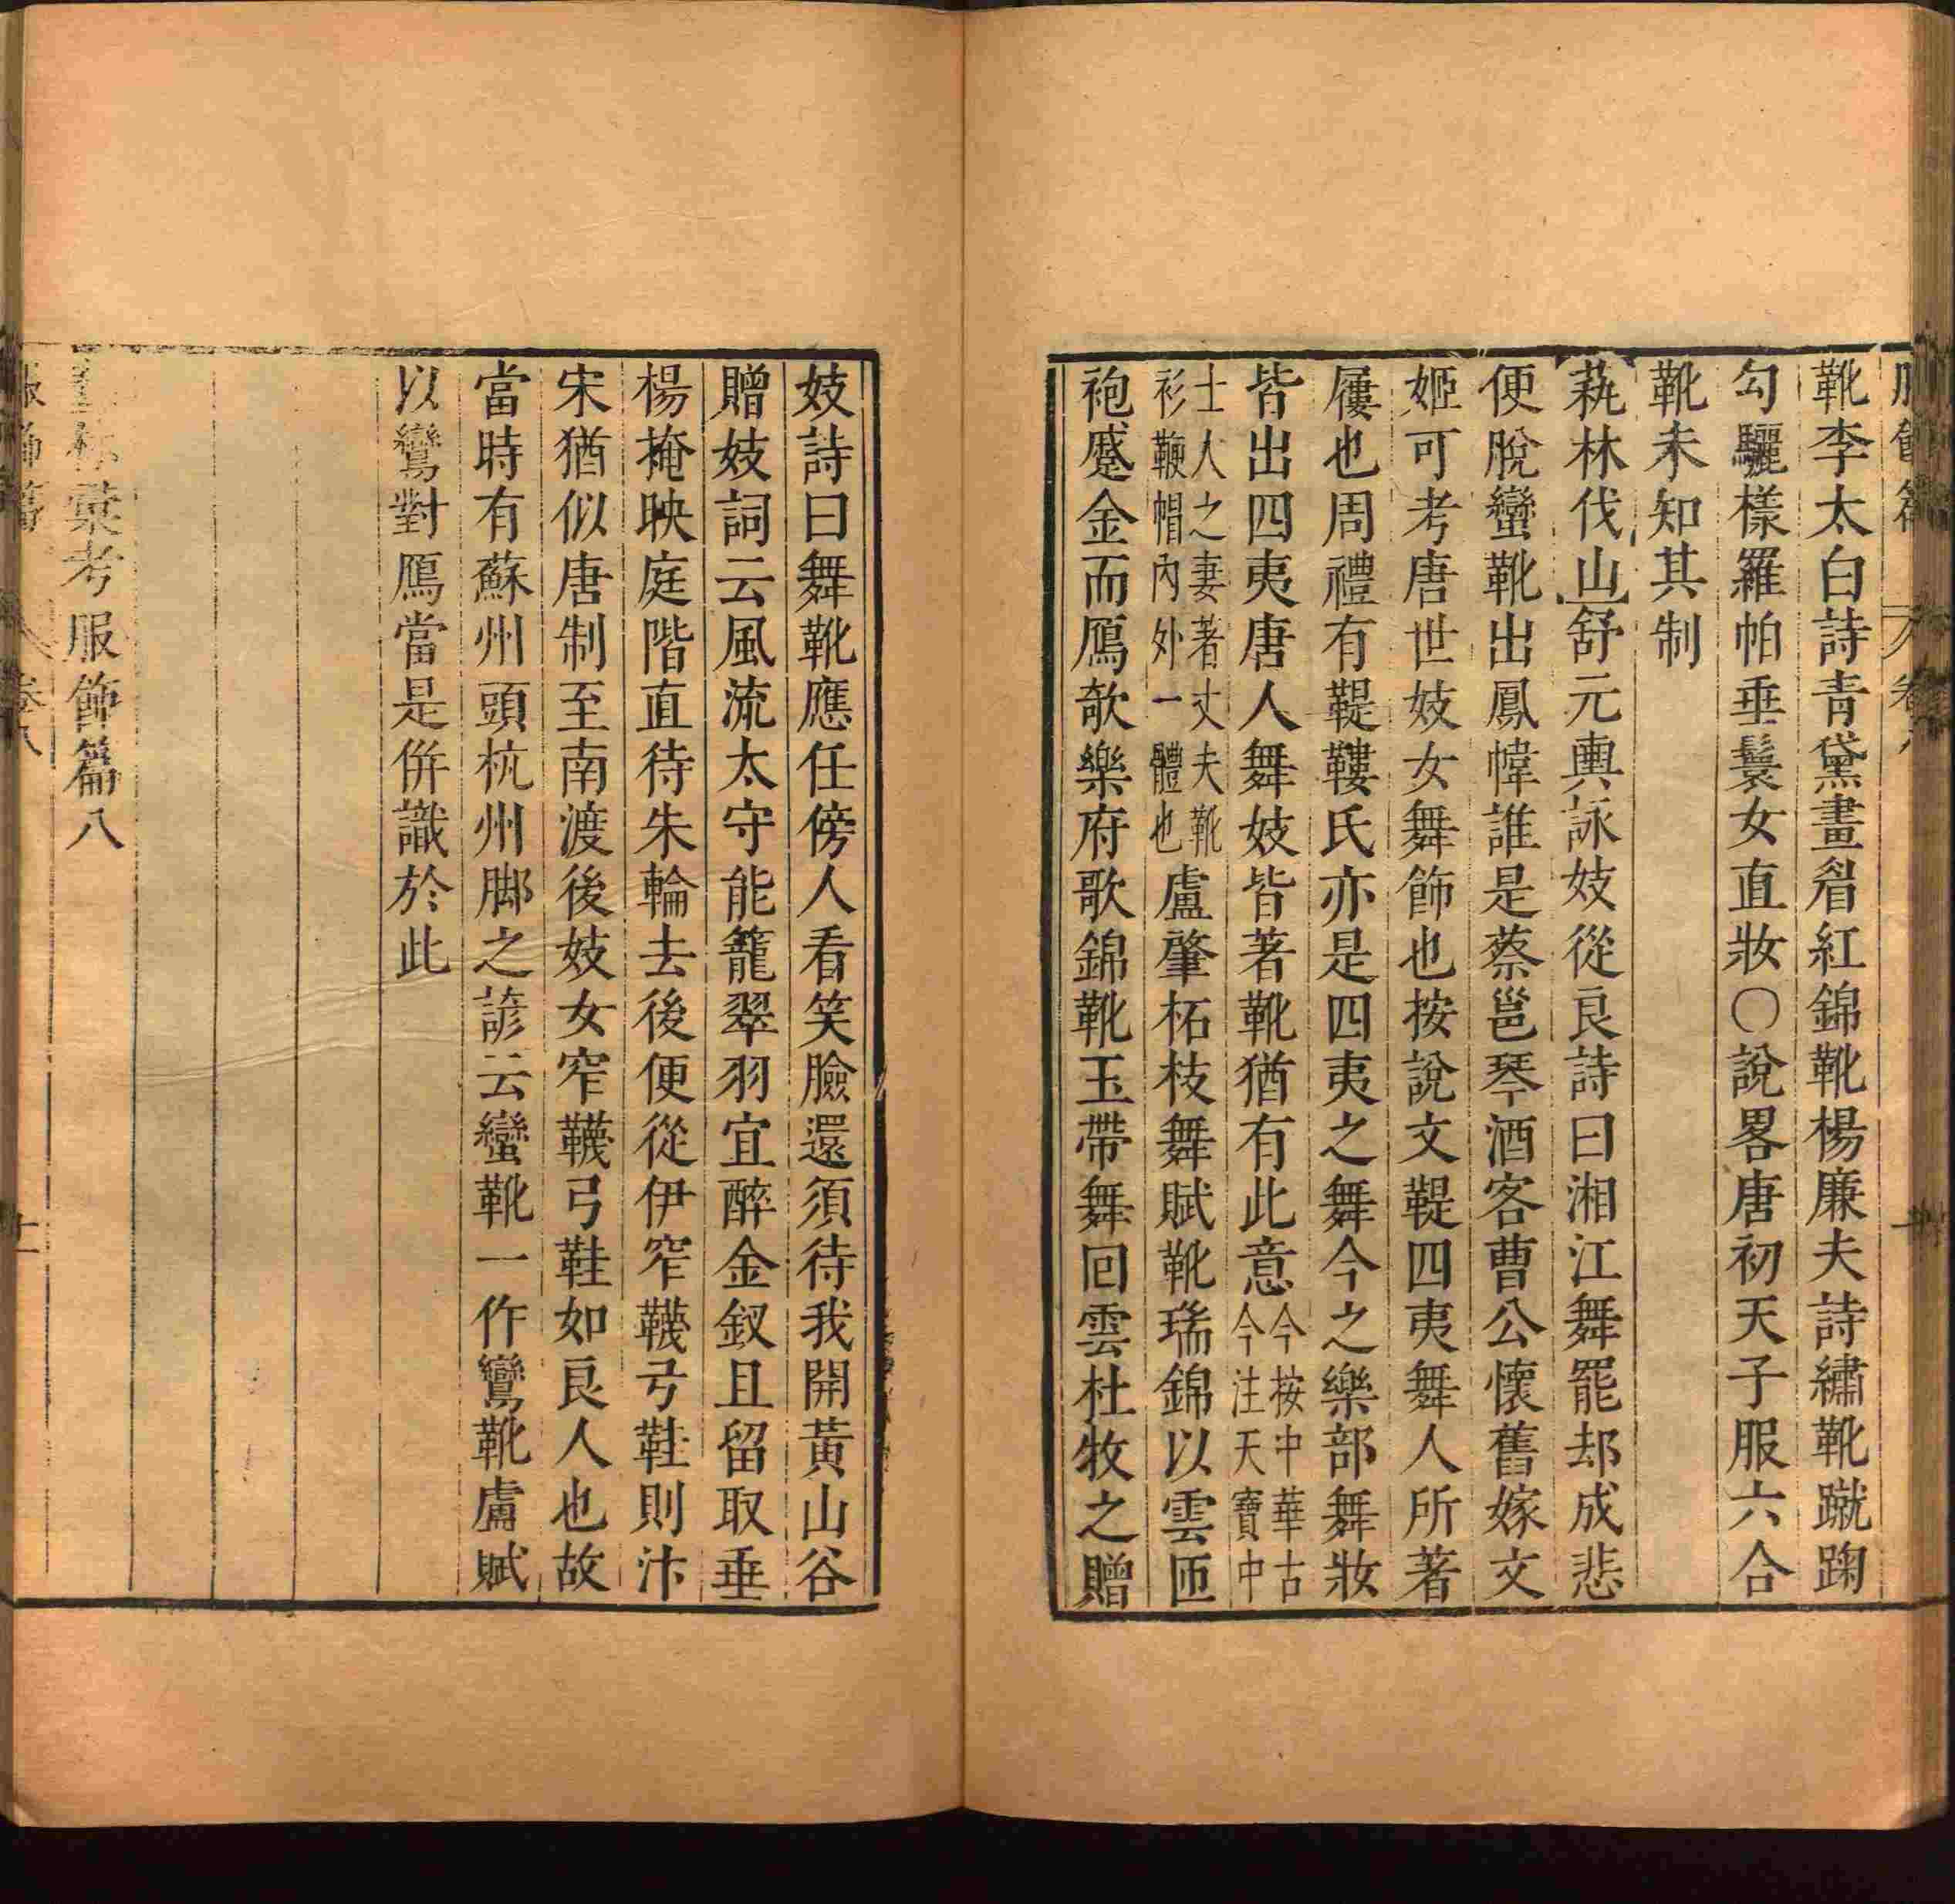 靴李太白詩青黛畫眉紅錦靴楊廉夫詩繡靴蹴踘
勾驪樣羅帕垂鬟女直妝〇說畧唐初天子服六合
靴未知其制
蓺林伐山舒元輿詠妓從良詩曰湘江舞罷却成悲
便脫蠻靴出鳳幃誰是蔡邕琴酒客曹公懷舊嫁文
姬可考唐世妓女舞飾也按說文鞮四夷舞人所著
屨也周禮有鞮鞻氏亦是四夷之舞今之樂部舞妝
皆出四夷唐人舞妓皆著靴猶有此意今按中華古
今注天寶中
士人之妻著丈夫靴
衫鞭帽內外一體也盧肇柘枝舞賦靴瑞錦以雲匝
袍蹙金而鴈欹樂府歌錦靴玉帶舞回雲杜牧之贈
妓詩曰舞靴應任傍人看笑臉還須待我開黃山谷
贈妓詞云風流太守能籠翠羽宜醉金釵且留取垂
楊掩映庭階直待朱輪去後便從伊窄韈弓鞋則汴
宋猶似唐制至南渡後妓女窄韈弓鞋如良人也故
當時有蘇州頭杭州脚之諺云蠻靴一作鸞靴盧賦
以鸞對鴈當是併識於此
彙考服飾篇八
卷八